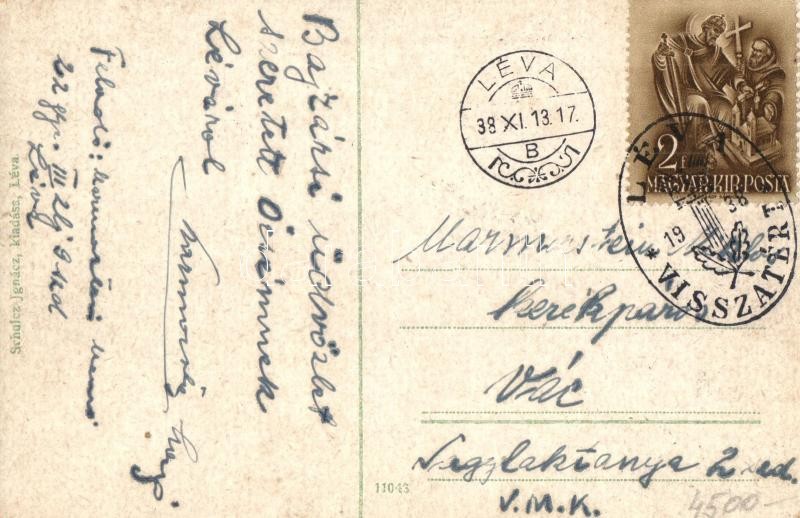 Bajtársi üdvözlet
szeretett Öcsémnek
Léváról
Feladó:
22. gy. III. zlj.
Léva
Schulcz Ignácz, kiadása, Léva.
LÉVA
38 XI. 13. 17.
B
2 f
MAGYAR KIR. POSTA
LÉVA
1938
* VISSZATÉRT
Marmorstein
Kerékpáros
Vác
Nagylaktanya 2
V.M.K.
11043
4500-